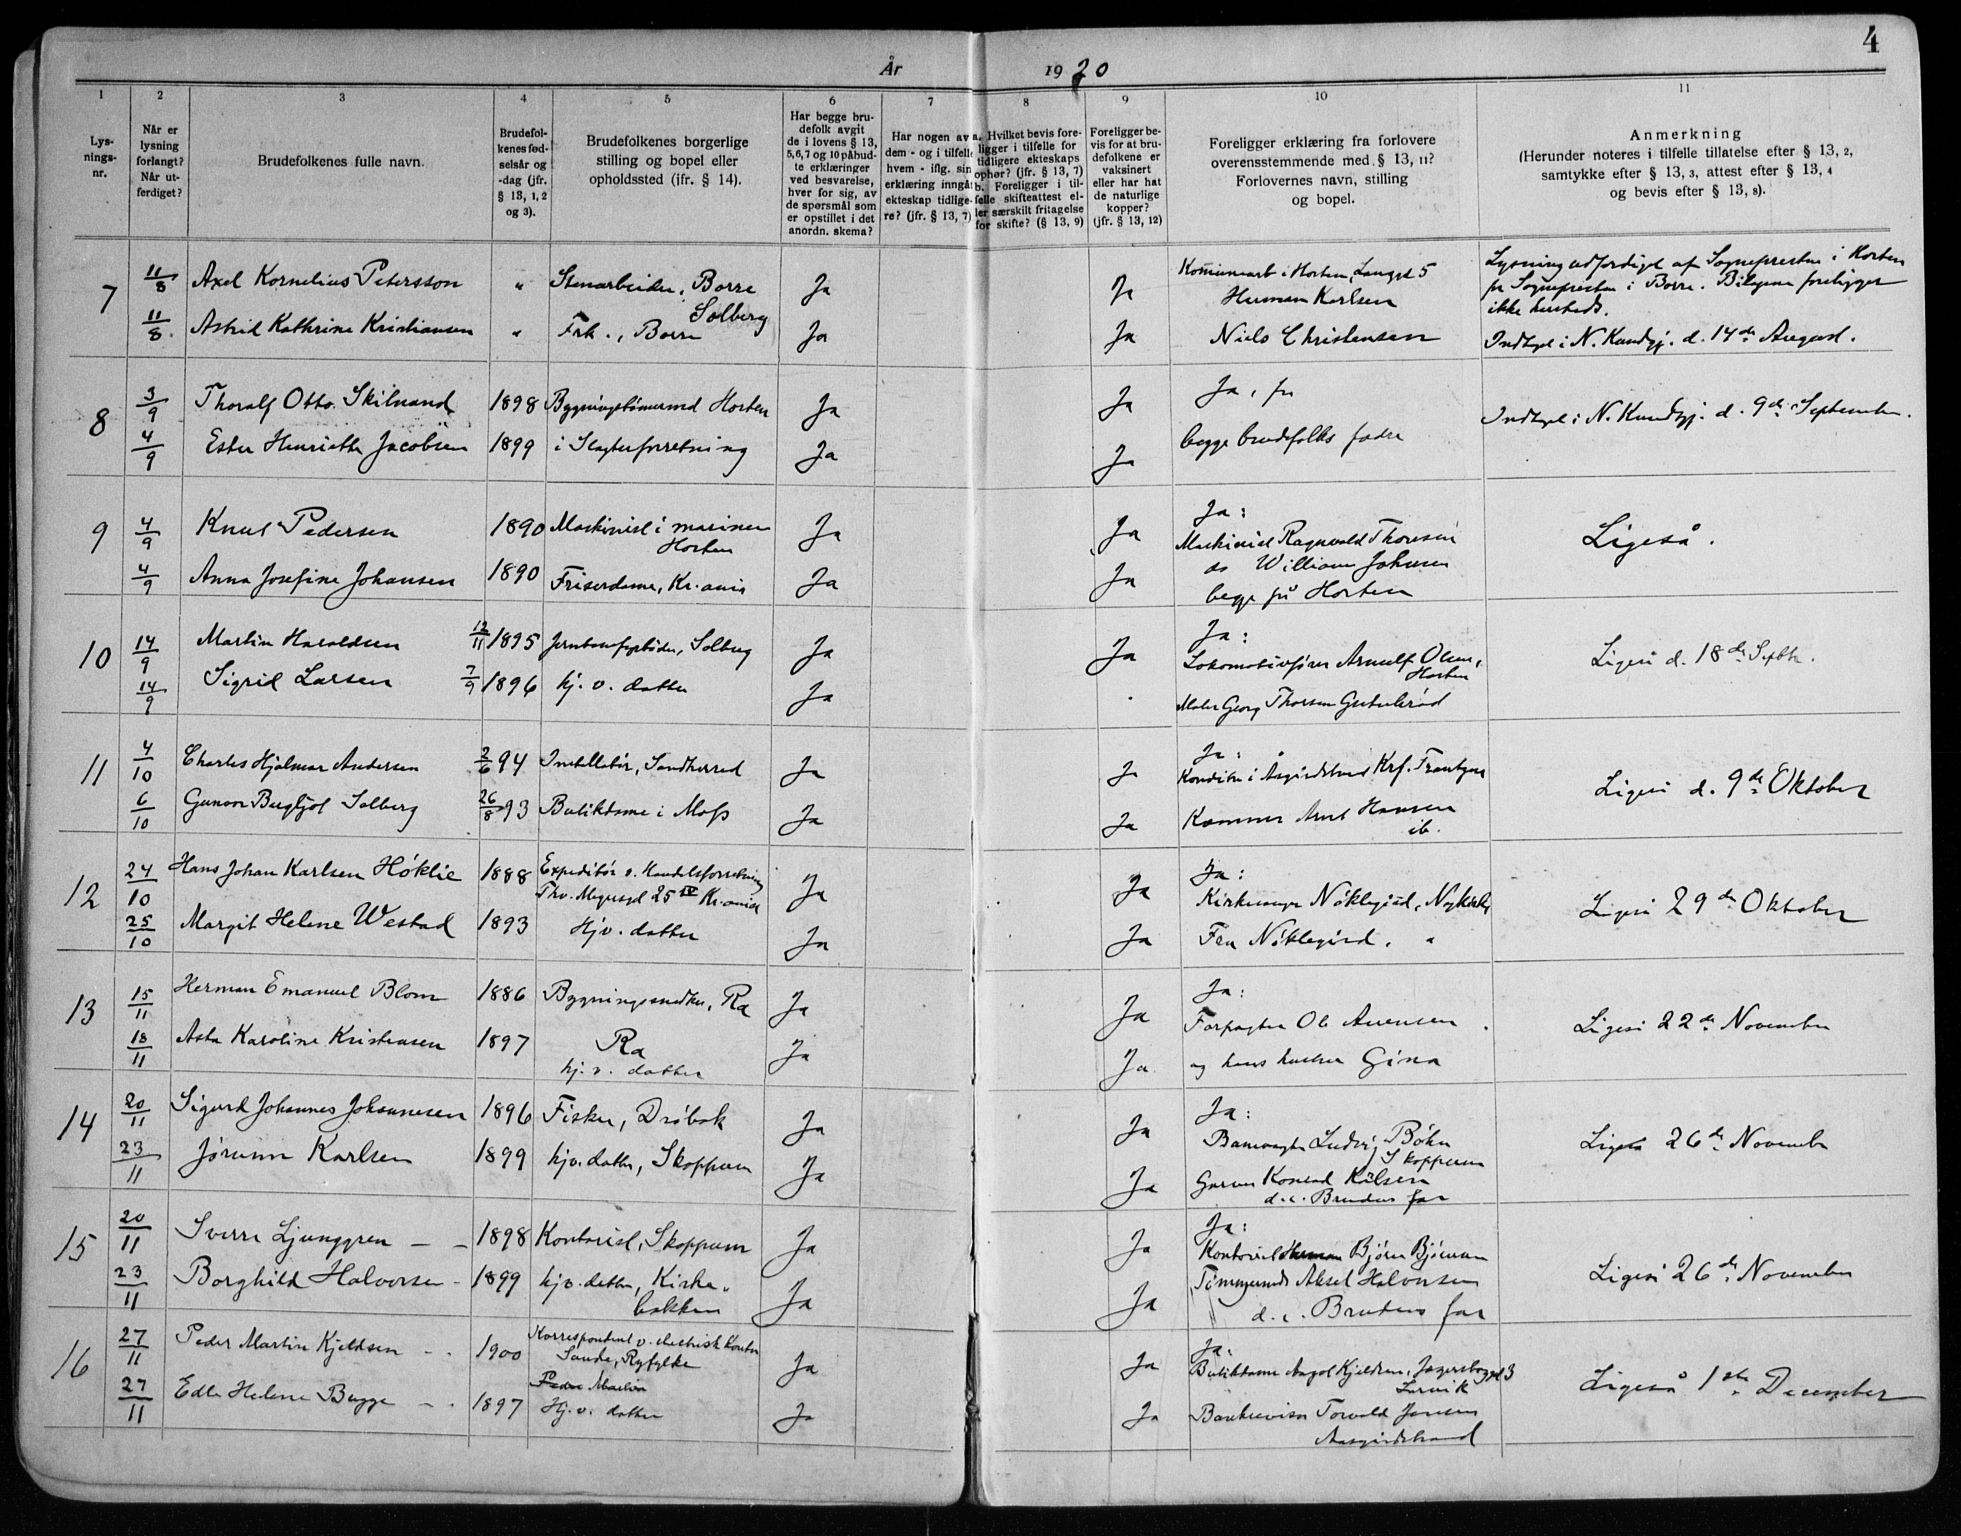 4
År 1920
1 2 3 4 5 6 7 8 9 10 11
Lysningsnr.
Når er lysning forlangt? Når utferdiget?
Brudefolkenes fulle navn.
Brudefolkenes fødselsår og -dag (jfr. § 13, 1, 2 og 3).
Brudefolkenes borgerlige stilling og bopel eller opholdssted (ifr. § 14).
Har begge brudefolk avgit de i lovens § 13, 5, 6, 7 og 10 påbudte erklæringer ved besvarelse, hver for sig, av de spørsmål som er opstillet i det anordn. skema?
Har nogen av dem - og i tilfelle hvem - iflg. sin erklæring inngått ekteskap tidligere? (jfr. § 13, 7)
a. Hvilket bevis foreligger i tilfelle for tidligere ekteskaps ophør? (jfr. § 13, 7) b. Foreligger i tilfelle skifteattest eller særskilt fritagelse for skifte? (§ 13, 9)
Foreligger bevis for at brudefolkene er vaksinert eller har hat de naturlige kopper? (jfr. § 13, 12)
Foreligger erklæring fra forlovere overensstemmende med § 13, 11? Forlovernes navn, stilling og bopel.
Anmerkning (Herunder noteres i tilfelle tillatelse efter § 13, 2, samtykke efter § 13, 3, attest efter § 13, 4 og bevis efter § 13, 8).
7 11/8 Axel Kornelius Petersson " Stenarbeider, Borre Ja Ja Horten, Langgt 5 Herman Karlsen
Solberg
11/8 Astrid Kathrine Kristiansen " Frk., Borre Ja Ja Niels Christensen
Lysning udfærdiget af Sognepresten i Horten
for Sognepresten i Borre. Bilagene foreligger
ikke hersteds.
Indtaget i N. Kundgj. d. 14de August.
8 3/9 Thoralf Otto Skilnand 1898 Bygningstømmermd Horten Ja Ja Ja, fra Indtaget i N. Kundgj. d. 9de September.
4/9 Ester Henriette Jacobsen 1899 i Slagterforretning Ja Ja begge brudefolks fædre
9 4/9 Knut Pedersen 1890 Maskinist i marinen Horten Ja Ja Ja: Maskinist Ragnvald Thoresen Ligeså.
4/9 Anna Josefine Johansen 1890 Friserdame, Kr.ania Ja Ja do William Johnsen
begge på Horten
10 14/9 Martin Haraldsen 12/11 1895 Solberg Ja Ja Ja: Lokomotivfører Arnulf Olsen, Horten Ligeså d. 18de Septbr.
14/9 Sigrid Larsen 7/9 1896 hj. v. datter Ja Maler Georg Thorsen
11 4/10 Charles Hjalmar Andersen 2/6 94 Installatør, Sandherred Ja Ja Ja: Konditor i Åsgårdstrand Krf. Ligeså d. 9de Oktober
6/10 Gunvor Bergljot Solberg 26/8 93 Butikdame i Moss Ja Ja Arnt Hansen ib.
12 24/10 Hans Johan Karlsen Høklie 1888 Expeditør v. Handelsforretning Ja Ja Ja: Ligeså 29de Oktober
Thv. Meyersgt 25 IV Kr.ania Kirkesanger Nøklegård, Nykirke
25/10 Margit Helene Westad 1893 Hjv. datter Ja Ja Fru Nøklegård. "
13 15/11 Herman Emanuel Blom 1886 Bygningssnedker, Ra Ja Ja Ja: Forpagter Ole Ligeså 22de November
18/11 Asta Karoline Kristensen 1897 Ra Ja Ja og hans hustru Gina
hj. v. datter
14 20/11 Sigurd Johannes Johannesen 1896 Fisker, Drøbak Ja Ja Ja: Banevogter Ludvig Skoppum Ligeså 26de November
23/11 Jørunn Karlsen 1899 hjv. datter, Skoppum Ja Ja Garver Konrad
d.e. Brudens far
15 20/11 Sverre Ljunggren 1898 Kontorist, Skoppum Ja Ja Ja: Kontorist Bjørn Bjørnum Ligeså 26de November
23/11 Borghild Halvorsen 1899 hjv. datter, Kirkebakken Ja Ja Tømmermd Aksel Halvorsen
d.e. Brudens far
16 27/11 Peder Martin Kjeldsen 1900 Korrespondent v. elektrisk kontor Ja Ja Ja: Ligeså 1ste December
Sande, Ryfylke Butikdame Aagot Kjeldsen, Larvik
Peder Martin
27/11 Edle Helene Bugge 1897 Hj. v. datter Ja Ja Torvald Jensen
Aasgårdstrand